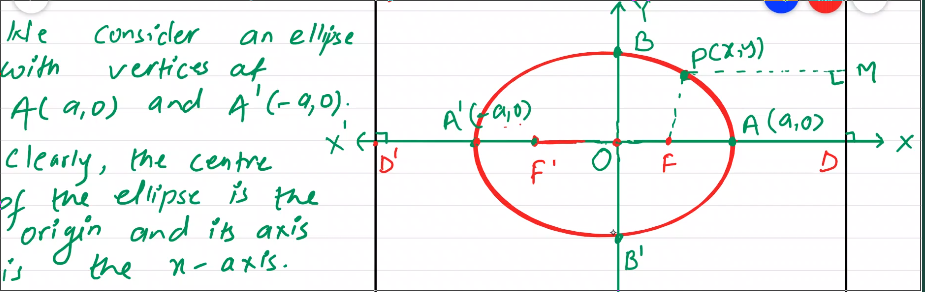 We consider an ellipse
with vertices at
A(a,0) and A'(-a,0).
Clearly, the centre
of the ellipse is the
origin and its axis
is the x-axis.
Y
B
P(x,y)
M
A'(-a,0)
A(a,0)
X'
X
D'
F'
O
F
D
B'